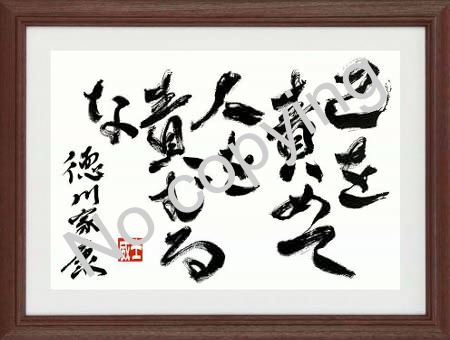 己を
責めて
人を
責むる
な
徳川家康
No copying